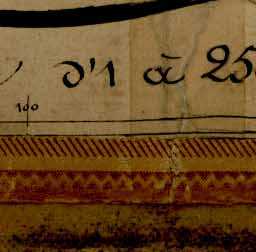 d'1 à 25
100